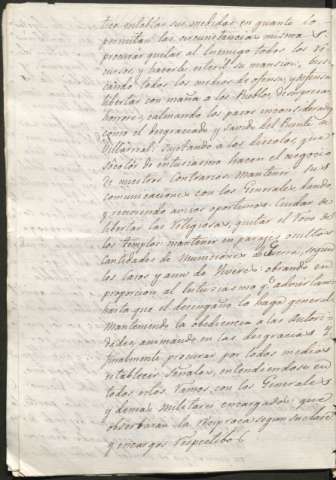 tico entablar sus medidas en quanto lo
permitan las circunstancias mismas y
procurar quitar al Enemigo todos los re
cursos y hacerle esteril su mansion, bus
cando todos los medios de ofensa y defensa
libertar con maña a los Pueblos de sus
horrores, calmando los pasos inconsiderados
como el desgraciado y sacado del Puente
Villarreal: sujetando a los discolos que
socolor de entusiasmo hacen el negocio
de nuestros Contrarios: Mantener sus
comunicaciones con los Generales dando
y recibiendo avisos oportunos: Cuidar de
libertar las Religiosas, quitar el robo de
los templos: mantener en parajes ocultos
Cantidades de Municiones de Guerra, segun
los casos y aun de Viveres: obrando en
proporcion al Entusiasmo q.e adviertan
hasta que el desengaño lo haga general
Manteniendo la obediencia a las Autori
dades, animando en las desgracias, y
finalmente procurar por todos medios
establecer Señales, entendiendose en
todos estos ramos con los Generales
y demas militares encargados, que
observaran la reciproca segun su clase
y encargos respectibos